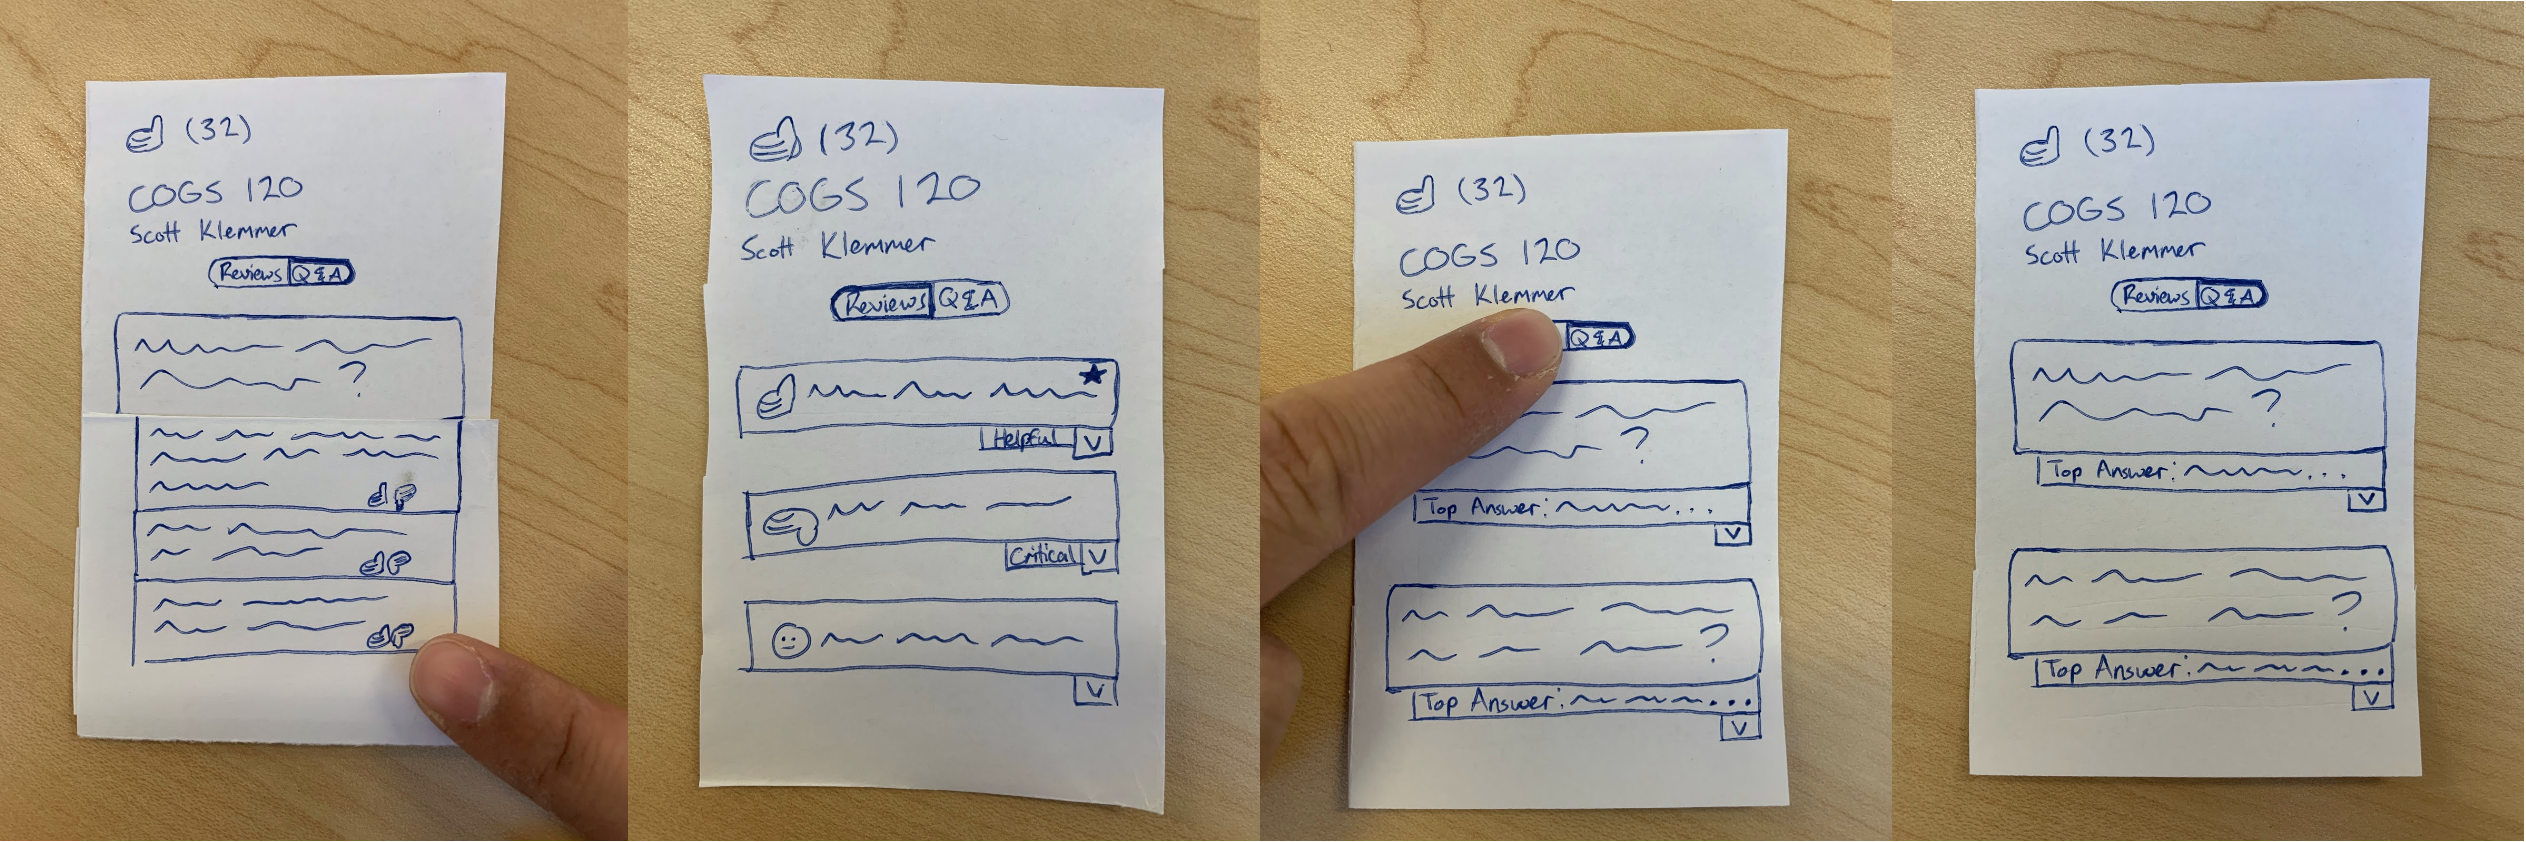 (32)
COGS 120
Scott Klemmer
Reviews Q&A
?
(32)
COGS 120
Scott Klemmer
Reviews Q&A
Helpful V
Critical V
V
(32)
COGS 120
Scott Klemmer
Q&A
?
Top Answer: ...
V
?
Top Answer: ...
V
(32)
COGS 120
Scott Klemmer
Reviews Q&A
?
Top Answer: ...
V
?
Top Answer: ...
V